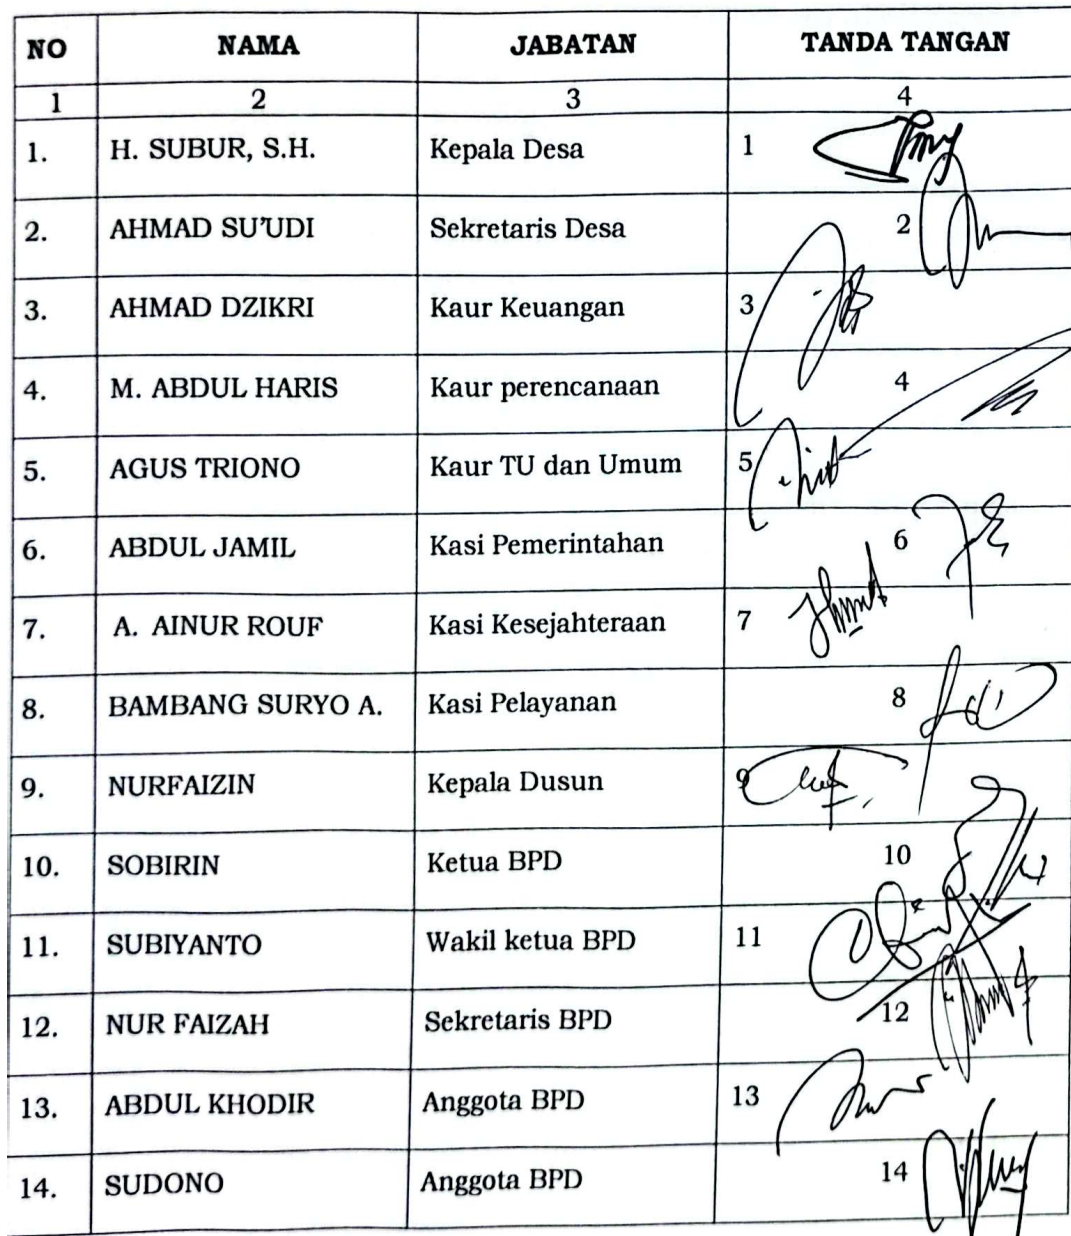 NO NAMA JABATAN TANDA TANGAN
1 2 3 4
1. H. SUBUR, S.H. Kepala Desa 1
2. AHMAD SU'UDI Sekretaris Desa 2
3. AHMAD DZIKRI Kaur Keuangan 3
4. M. ABDUL HARIS Kaur perencanaan 4
5. AGUS TRIONO Kaur TU dan Umum 5
6. ABDUL JAMIL Kasi Pemerintahan 6
7. A. AINUR ROUF Kasi Kesejahteraan 7
8. BAMBANG SURYO A. Kasi Pelayanan 8
9. NURFAIZIN Kepala Dusun 9
10. SOBIRIN Ketua BPD 10
11. SUBIYANTO Wakil ketua BPD 11
12. NUR FAIZAH Sekretaris BPD 12
13. ABDUL KHODIR Anggota BPD 13
14. SUDONO Anggota BPD 14